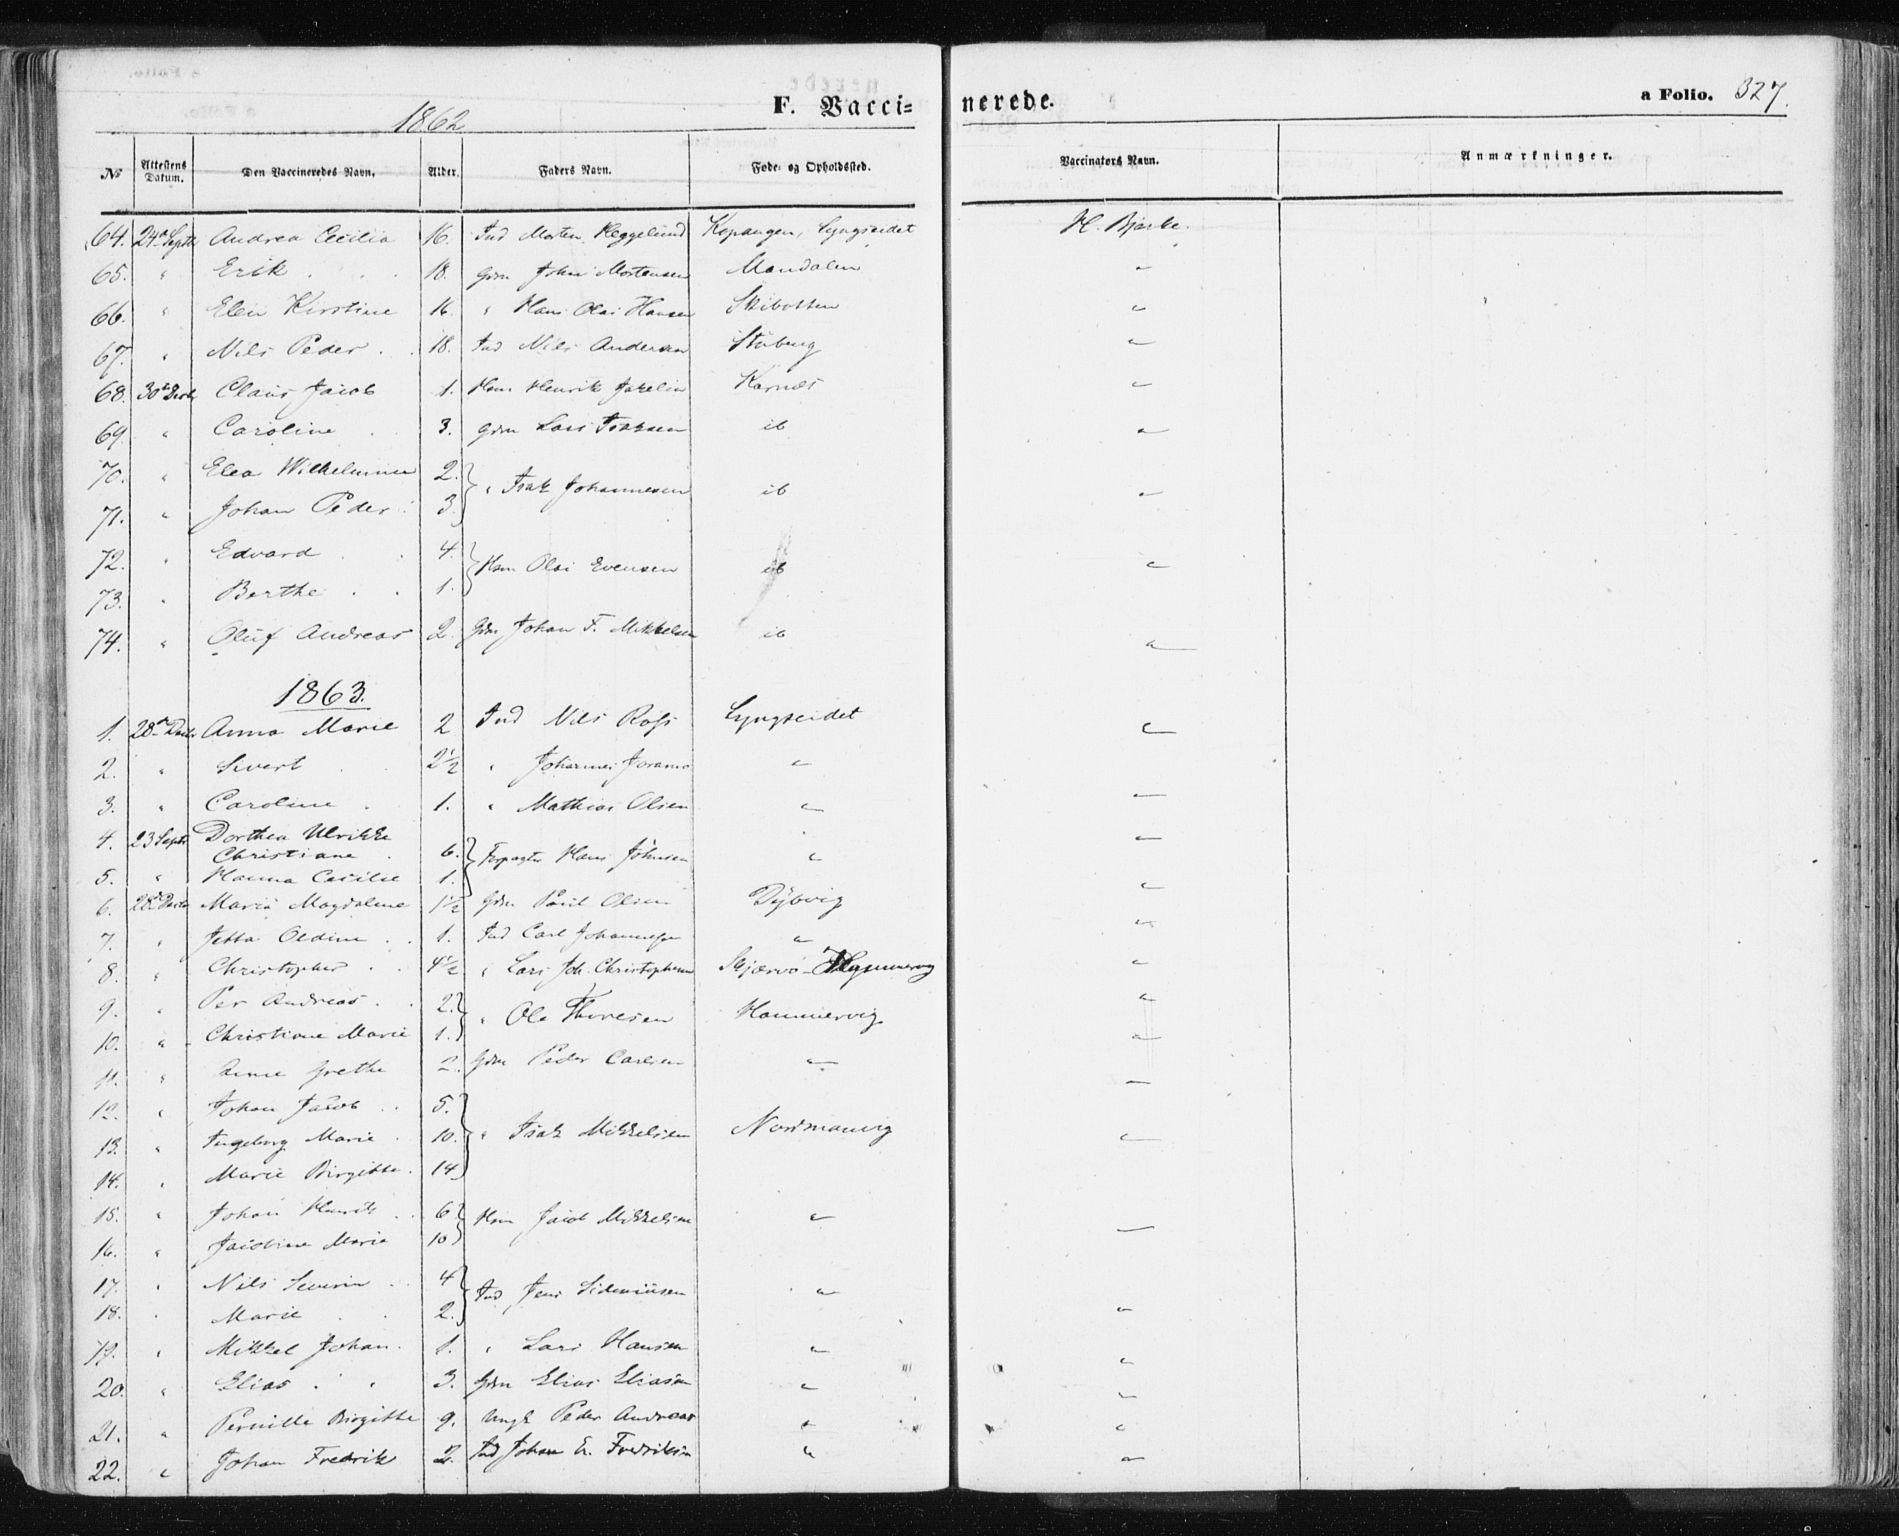 1862
F. Vacci- nerede.
a Folio. 327.
№ Attestens Datum. Den Vaccineredes Navn. Alder. Faders Navn. Føde- og Opholdssted. Vaccinators Navn. Anmærkninger.
64. 24de Septb Andrea Cecilia 16. Ind Morten Heggelund Kopangen, Lyngseidet H. Bjerke.
65. " Erik 18. Gdm John Mortensen Mandalen "
66. " Elen Kirstine 16. " Hans Olai Hansen Skibotten "
67. " Nils Peder 18. Ind Nils Andersen "
68. 30te Decb Claus Jacob 1. Hsm Henrik Karnæs "
69. " Caroline 3. Gdm Lars Isaksen ib "
70. " Elea Wilhelmine 2. } " Isak Johannesen ib "
71. " Johan Peder 3. }
72. " Edvard 4. } Hsm Olai Evensen ib "
73. " Berthe 1. }
74. " Oluf Andreas 2. Gdm Johan F. Mikkelsen ib "
1863.
1. Anna Marie 2 Ind Nils Ross Lyngseidet "
2. " Sivert 2½ " Johannes " 
3. " Caroline 1. " Mathias Olsen " "
4. 23 Septb Dorthea Ulrikke
Christiane 6. } Hans Johnsen " "
5. " Hanna Cecilie 1. }
6. Maria Magdalene 1½ Gdm Poul Olsen Dybvig "
7. " Jetta Oldine 1. Ind Carl Johannessen " "
8. " Christopher 4½ " Lars Joh. Christophersen Skjærvø "
9. " Per Andreas 2. } " Ole Thoresen Hammervig "
10. " Christiane Marie 1. } "
11. " Anne Grethe 2. Gdm Peder Carlsen " "
12. " Johan Jacob 5. }
13. " Ingeborg Marie 10. } " Isak Mikkelsen Nordmanvig "
14. " Marie Birgitte 14 }
15. " Johan Henrik 6 } Hsm Jacob Mikkelsen " "
16. " Jacobine Maria 10 }
17. " Nils Severin 4 } Ind Jens " "
18. " Marie 2. }
19. " Mikkel Johan 1. " Lars Hansen " "
20. " Elias 3. Gdm Elias Eliasen " "
21. " Pernille Birgitte 9. Ungk Peder Andreas " "
22. " Johan Fredrik 2. Ind Johan E. Fredriksen " "